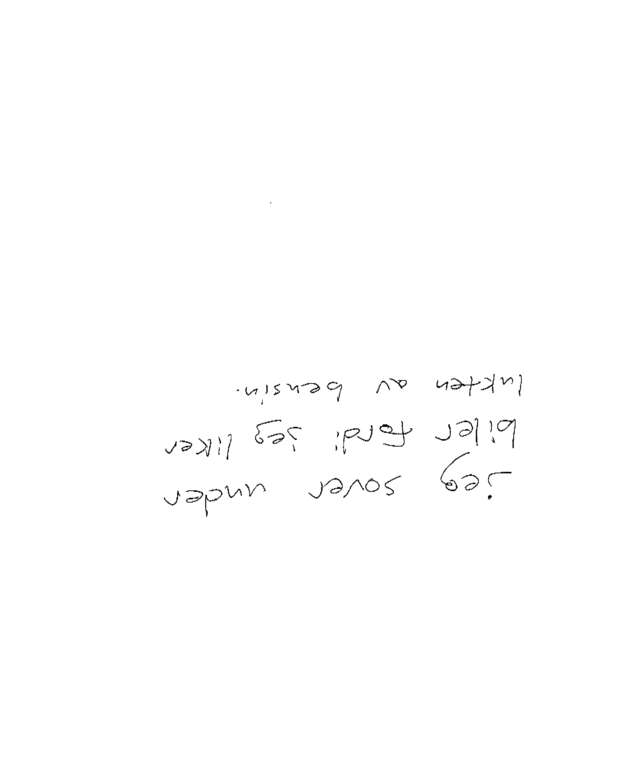 jeg sover under
biler fordi jeg liker
lukten av bensin.